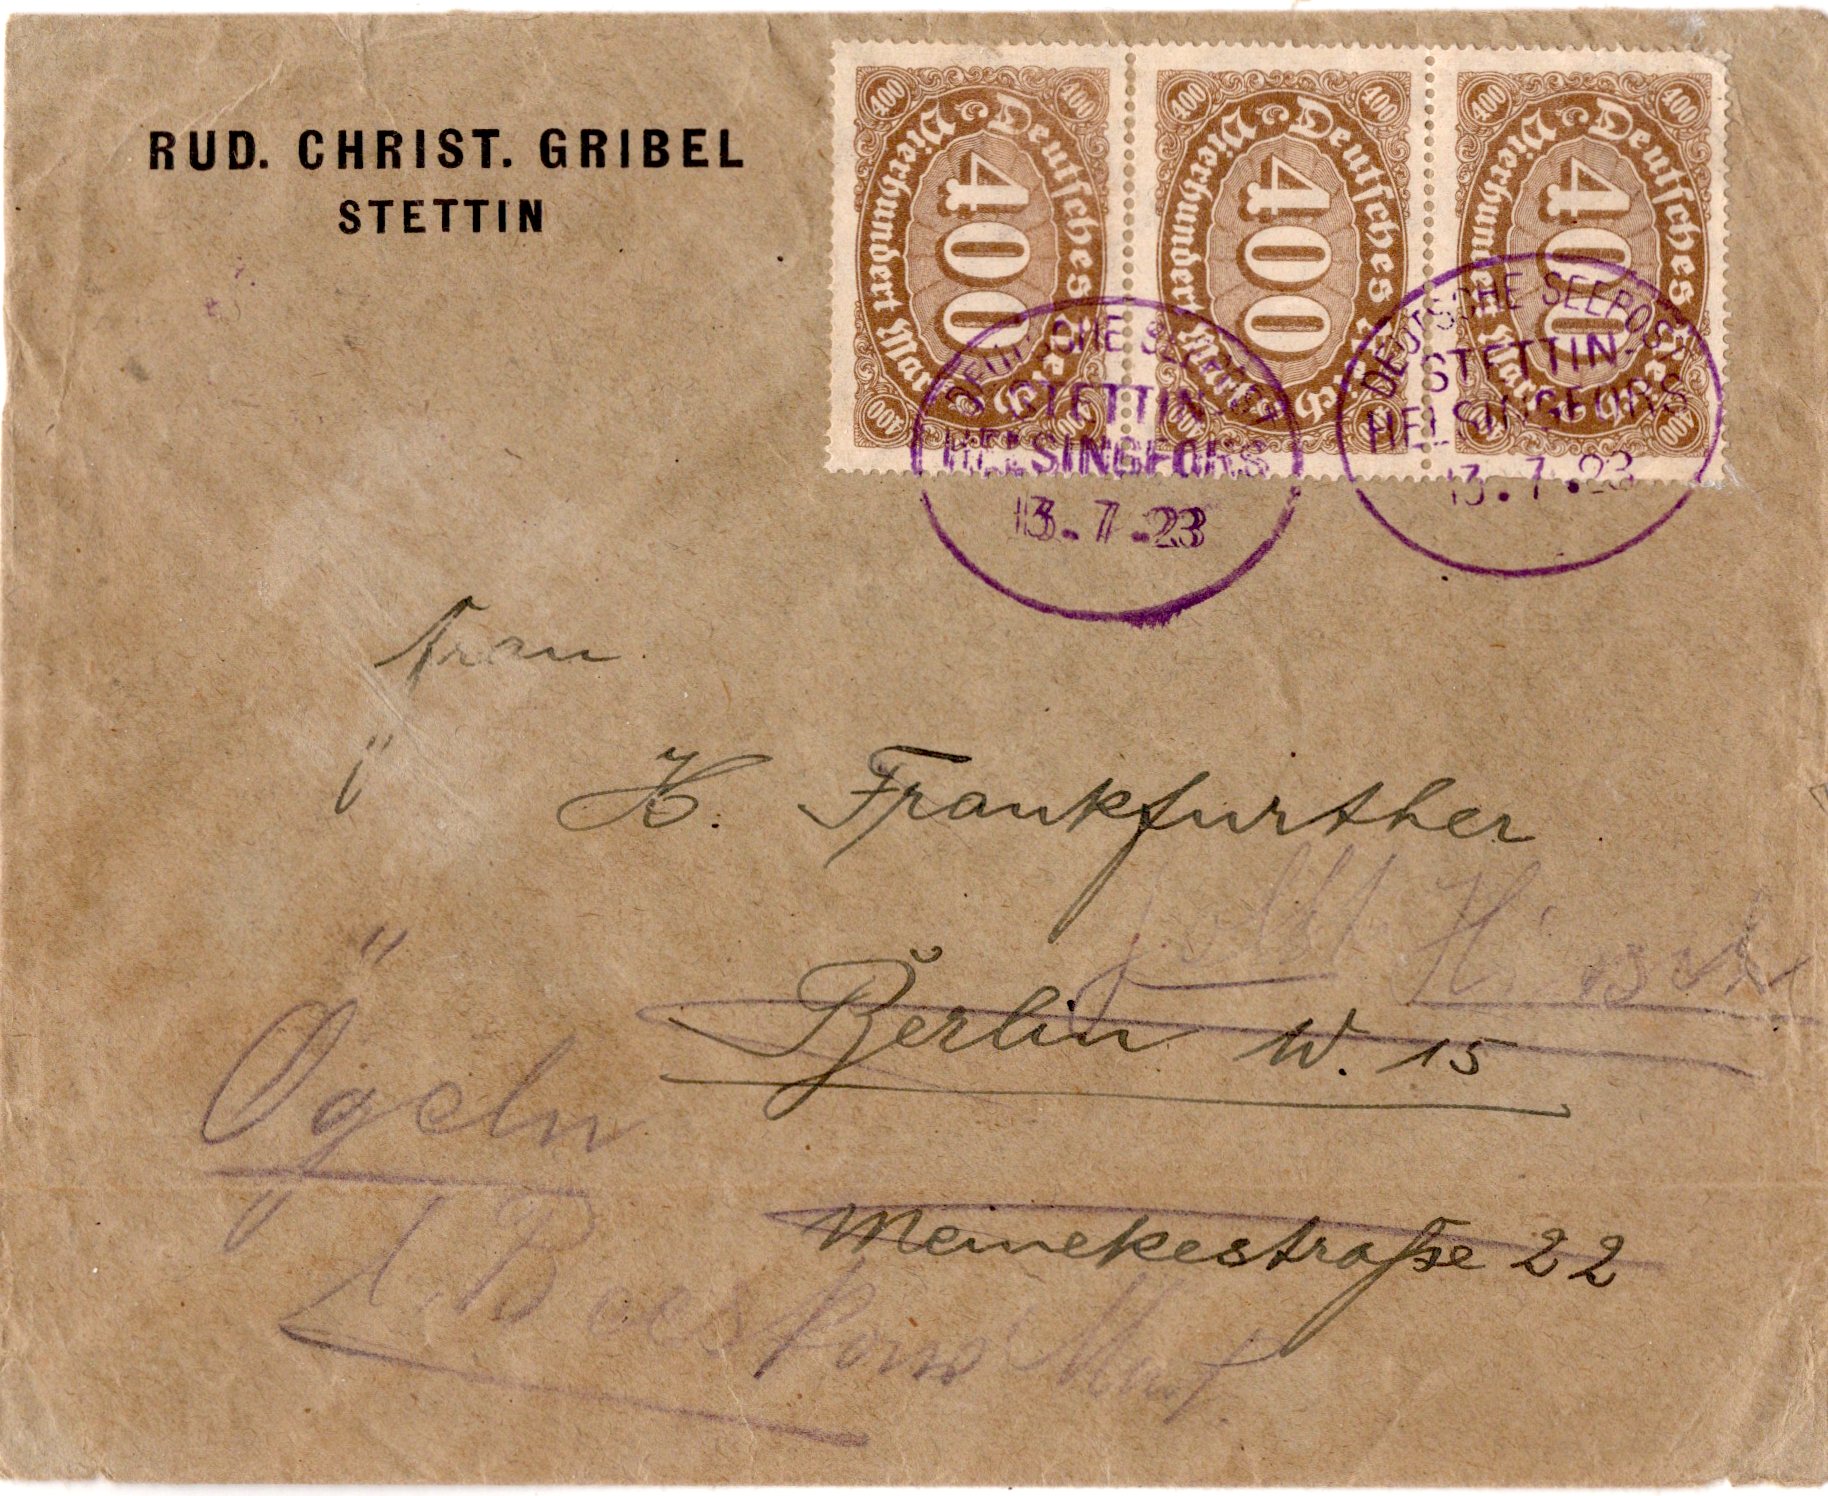 RUD. CHRIST. GRIBEL
STETTIN
400 400 Deutsches Reich Vierhundert Mark 400 400 400
400 400 Deutsches Reich Vierhundert Mark 400 400 400
400 400 Deutsches Reich Vierhundert Mark 400 400 400
DEUTSCHE SEEPOST
STETTIN-
HELSINGFORS
13.7.23
DEUTSCHE SEEPOST
STETTIN-
HELSINGFORS
13.7.23
Frau
H. Frankfurther
Berlin W. 15
Meinekestraße 22
Ögeln
Beeskow Mark